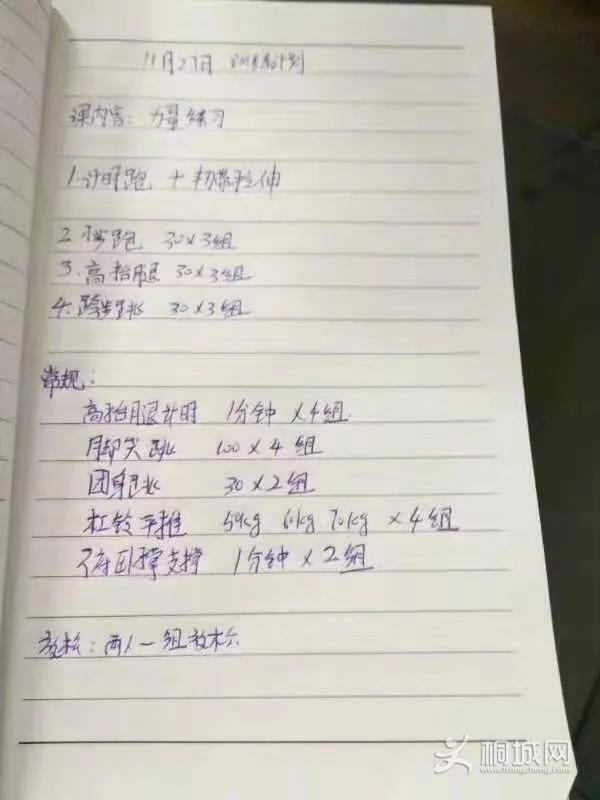 11月27日 训练计划
课内容：力量练习
1.计时跑 + 韧带拉伸
2.步跑 30×3组
3.高抬腿 30×3组
4.跨步跳 30×3组
常规：
高抬腿计时 1分钟 ×4组
脚尖跳 100×4组
团身跳 30×2组
杠铃平推 50kg 60kg 70kg ×4组
俯卧撑支撑 1分钟×2组
放松：两人一组放松
桐城网
www.itongcheng.com